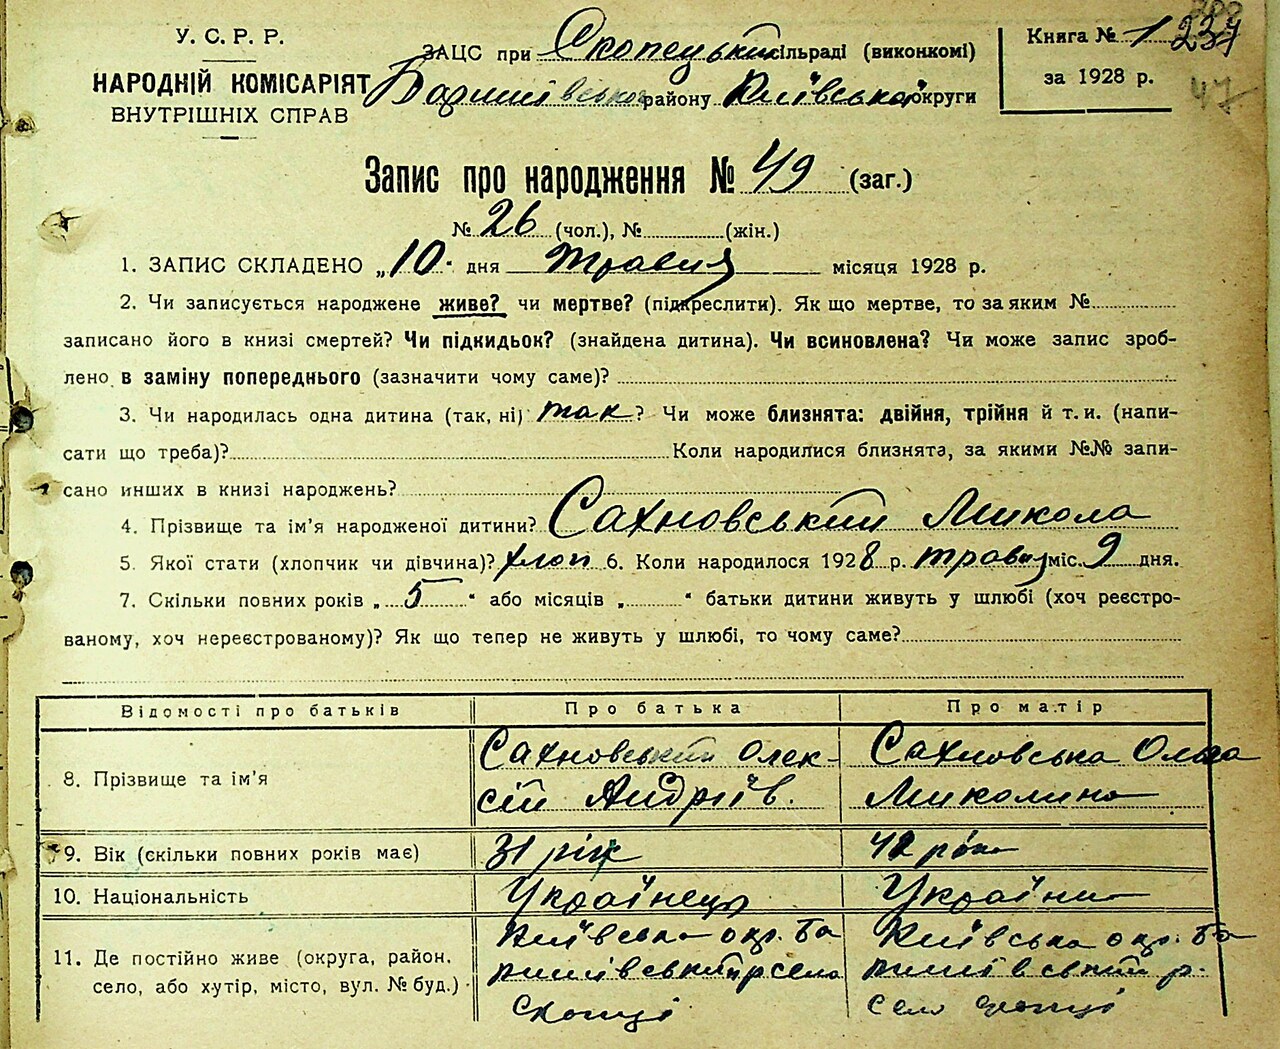 У. С. Р. Р.
НАРОДНІЙ КОМІСАРІЯТ
ВНУТРІШНІХ СПРАВ
ЗАЦС при Скопецький сільраді (виконкомі)
району Київська округи
Книга № 1 237
за 1928 р.
47
Запис про народження № 49 (заг.)
№ 26 (чол.), № (жін.)
1. ЗАПИС СКЛАДЕНО „10" дня травня місяця 1928 р.
2. Чи записується народжене живе? чи мертве? (підкреслити). Як що мертве, то за яким №
записано його в книзі смертей? Чи підкидьок? (знайдена дитина). Чи всиновлена? Чи може запис зроб-
лено в заміну попереднього (зазначити чому саме)?
3. Чи народилась одна дитина (так, ні) так? Чи може близнята: двійня, трійня й т. и. (напи-
сати що треба)? Коли народилися близнята, за якими №№ запи-
сано инших в книзі народжень?
4. Прізвище та ім'я народженої дитини? Сахновський Микола
5. Якої стати (хлопчик чи дівчина)? хлоп 6. Коли народилося 1928 р. травня міс. 9 дня.
7. Скільки повних років „5" або місяців „ " батьки дитини живуть у шлюбі (хоч реєстро-
ваному, хоч нереєстрованому)? Як що тепер не живуть у шлюбі, то чому саме?
Відомості про батьків Про батька Про матір
8. Прізвище та ім'я
Сахновський Олек-
сій Андріїв.
Сахновська Ольга
Миколина
9. Вік (скільки повних років має) 31 рік 42 роки
10. Національність Українець Українка
11. Де постійно живе (округа, район,
село, або хутір, місто, вул. № буд.)
Київська окр. Ба
село
Скопці
Київська окр. Ба
р.
село Скопці